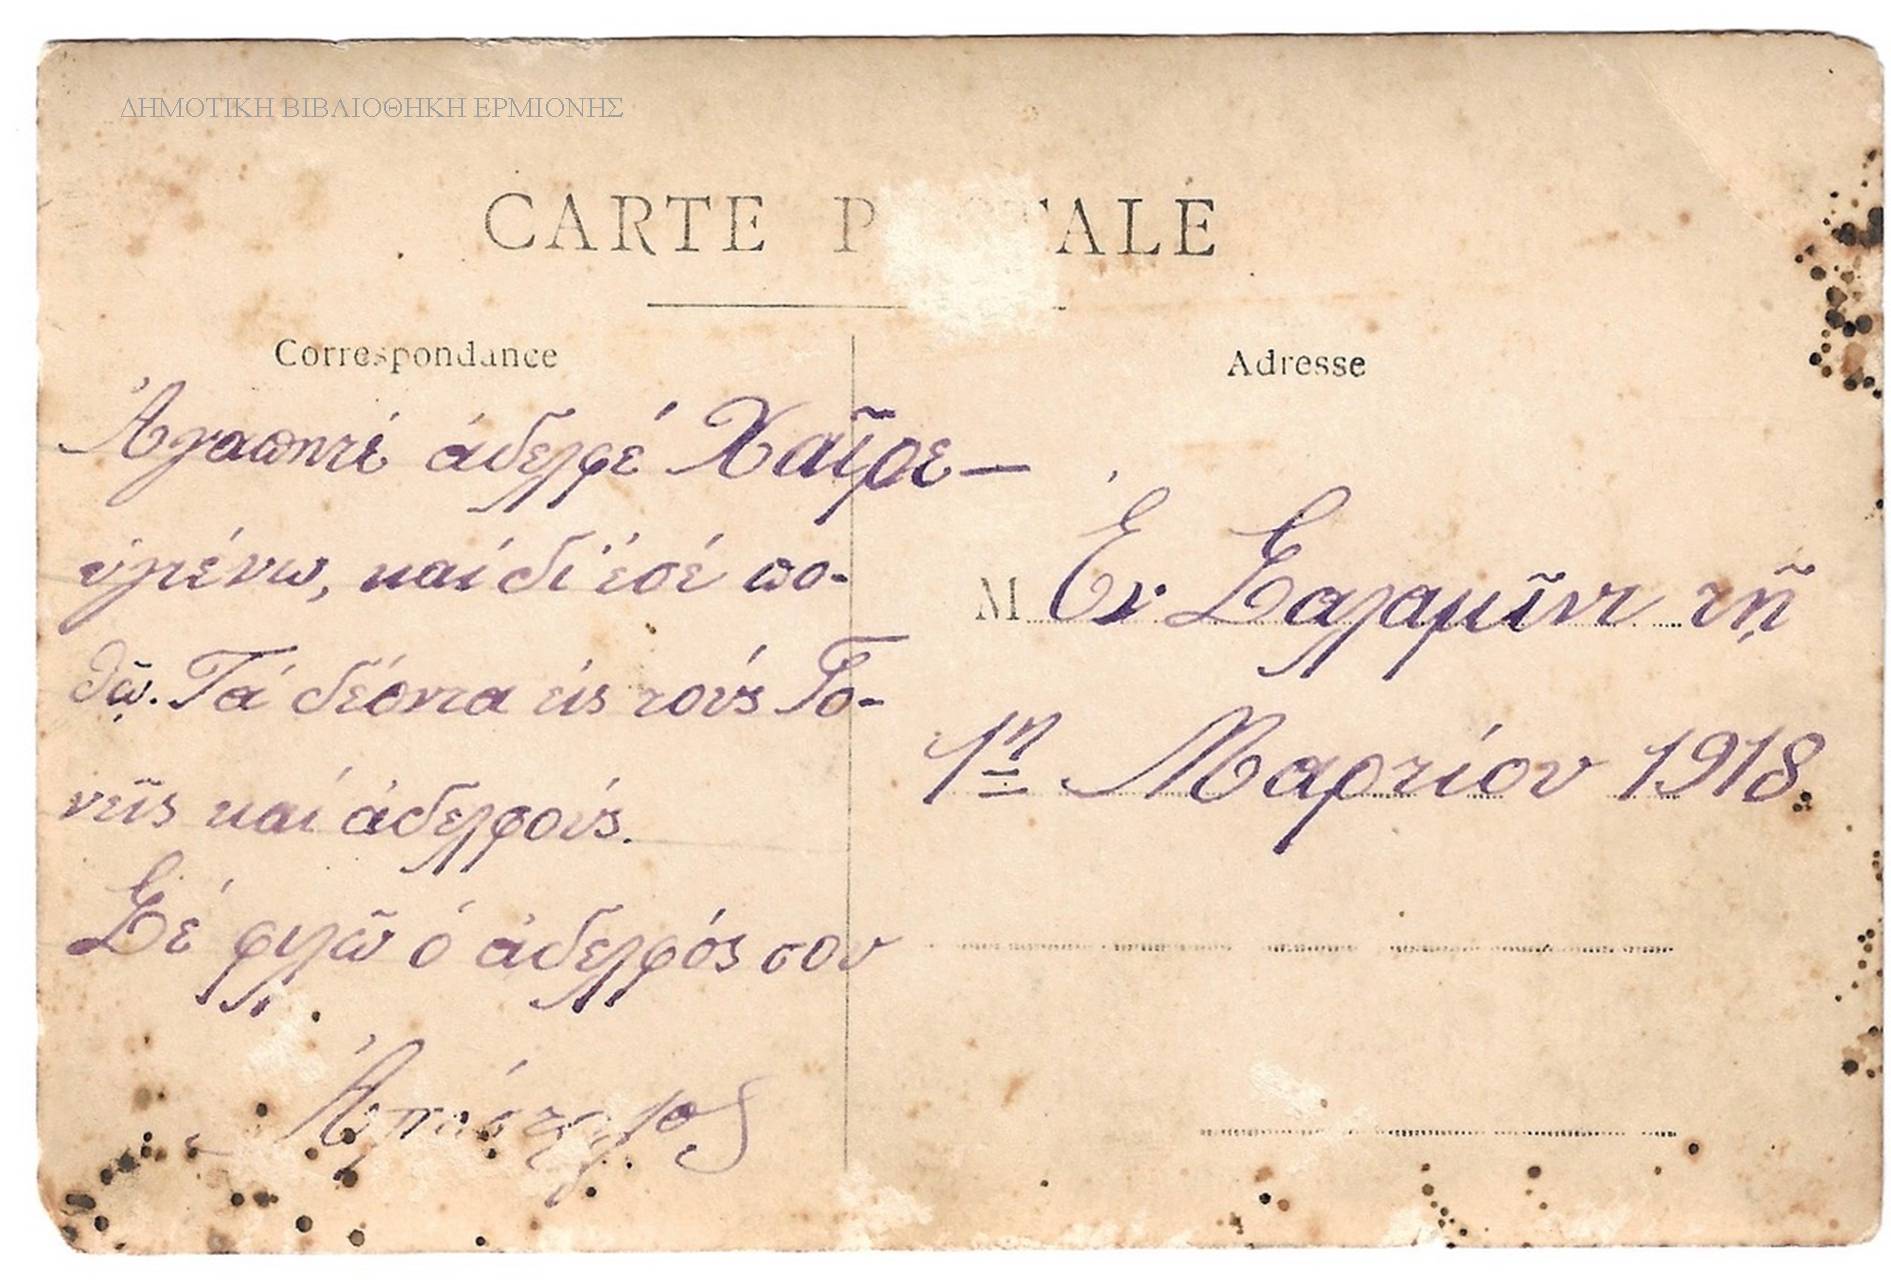 ΔΗΜΟΤΙΚΗ ΒΙΒΛΙΟΘΗΚΗ ΕΡΜΙΟΝΗΣ
CARTE P TALE
Correspondance
Ἀγαπητέ ἀδελφέ Χαῖρε—
ὑγιένω, καί δι' ἐσέ πο-
θῶ. Τά δέοντα εἰς τούς Γο-
νεῖς καί ἀδελφούς.
Σέ φιλῶ ὁ ἀδελφός σου
Ἀπόστολος
Adresse
M Ἐν Σαλαμῖνι τῇ
1η Μαρτίου 1918.